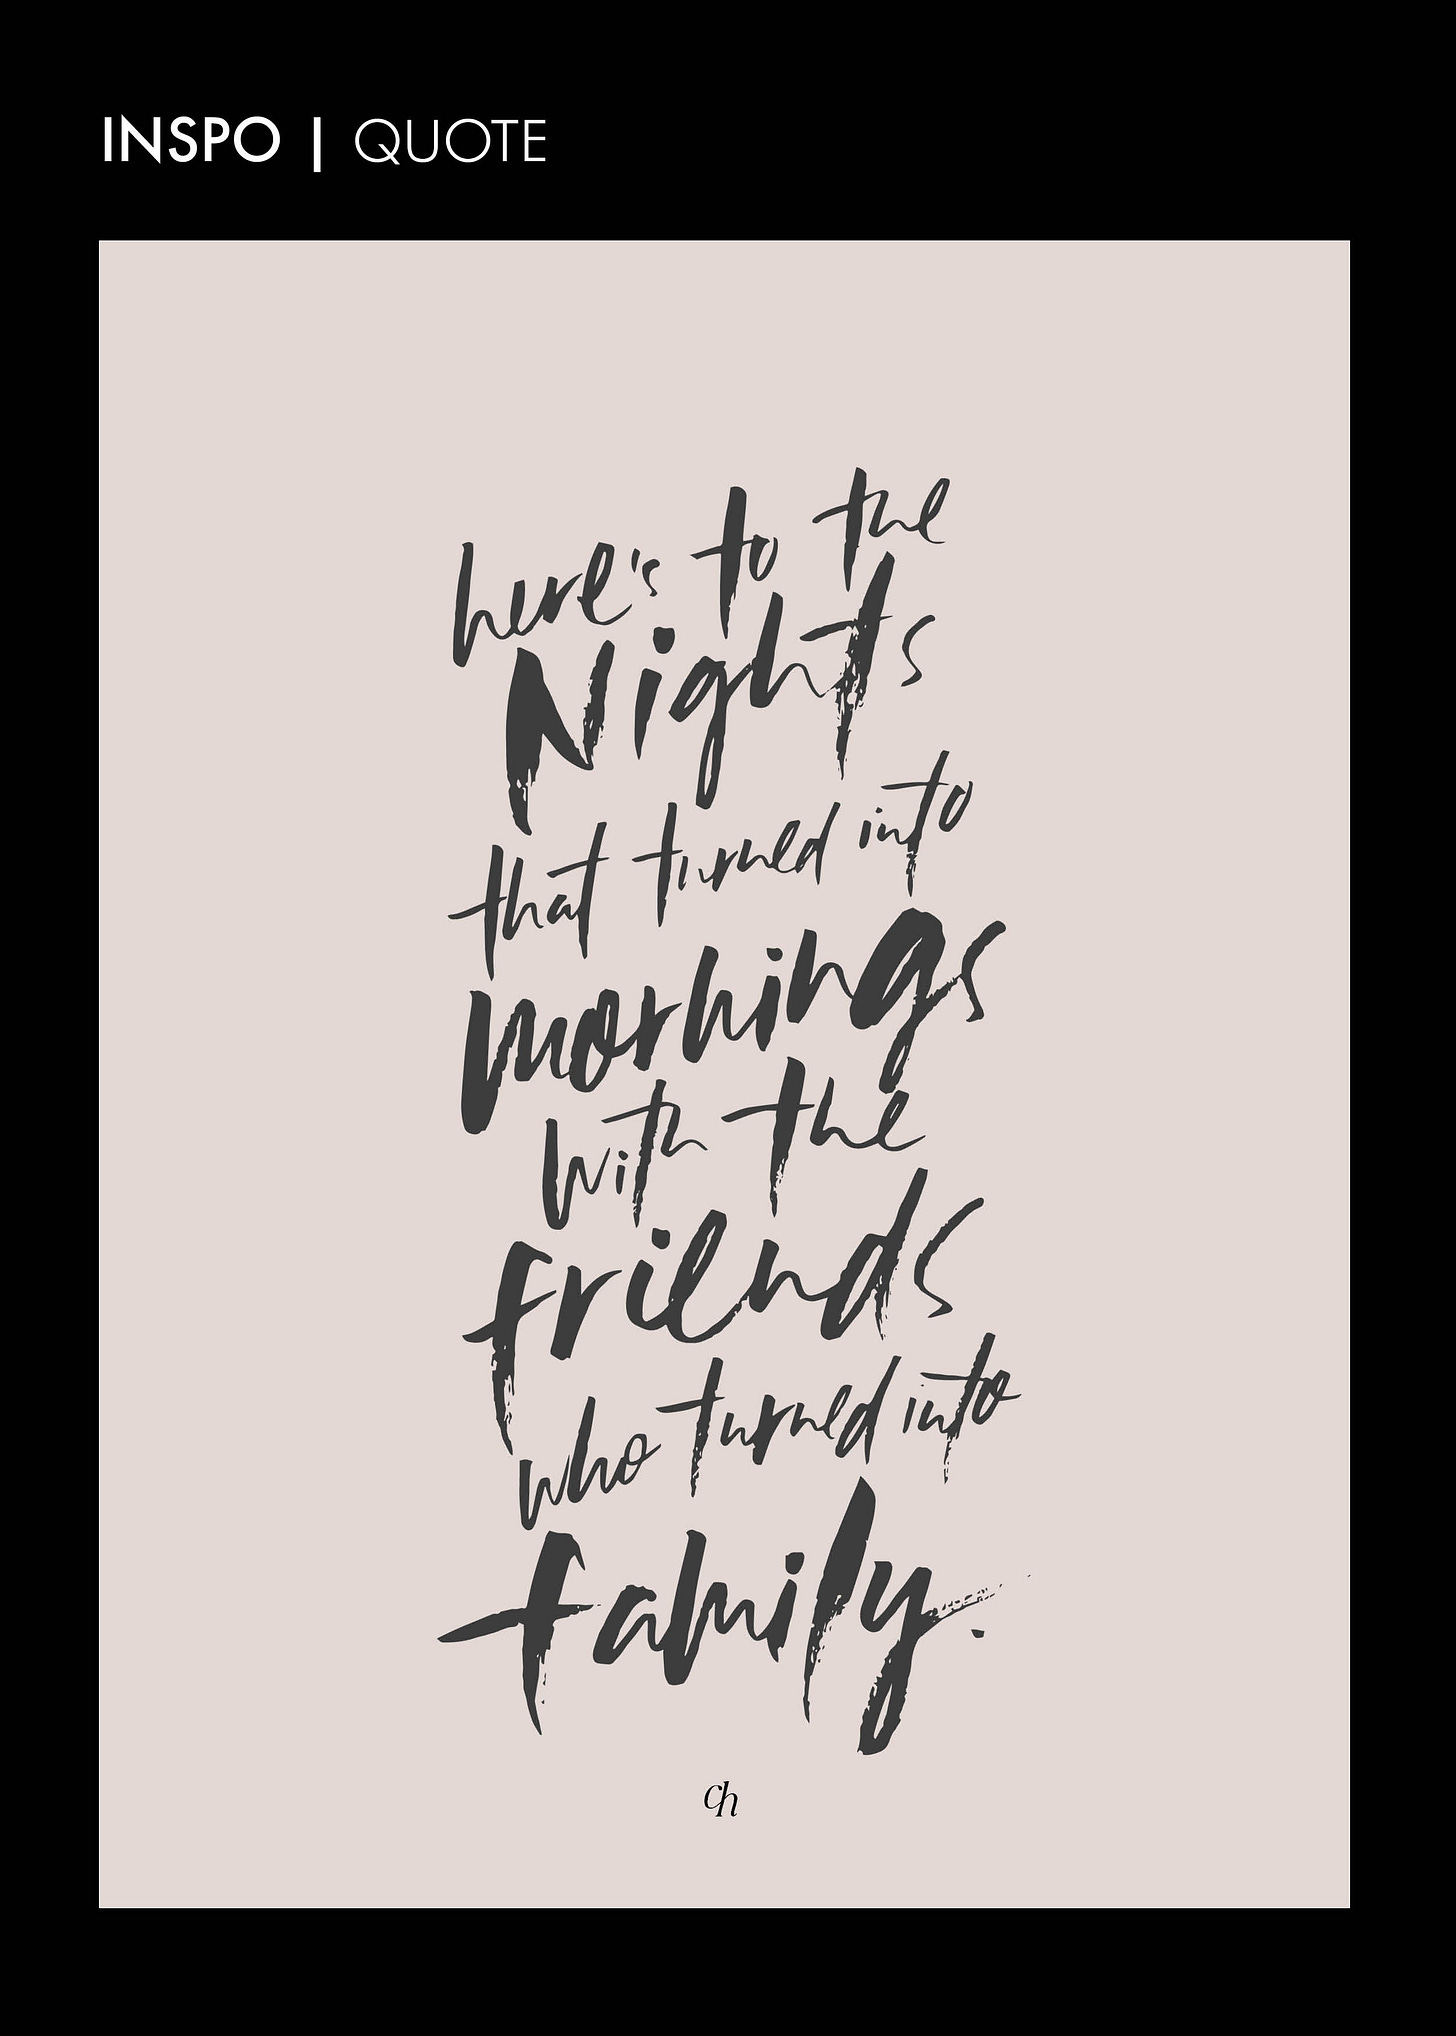 INSPO | QUOTE
here's to the
Nights
that turned into
mornings
with the
friends
who turned into
family.
ch